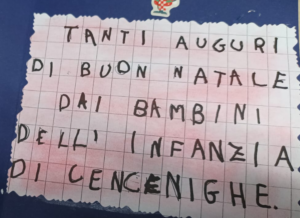 TANTI AUGURI
DI BUON NATALE
DAI BAMBINI
DELL' INFANZIA
DI CENCENIGHE.